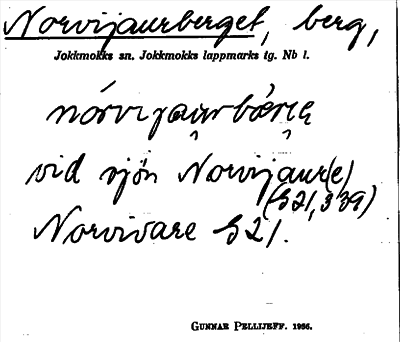 Norvijaurberget, berg,
Jokkmokks sn. Jokkmokks lappmarks tg. Nb l.
nórvijau̯rbær̀i̯ɛ
vid sjön Norvijaur(e)
(S21, 339)
Norvivare S21.
GUNNAR PELLIJEFF. 1956.